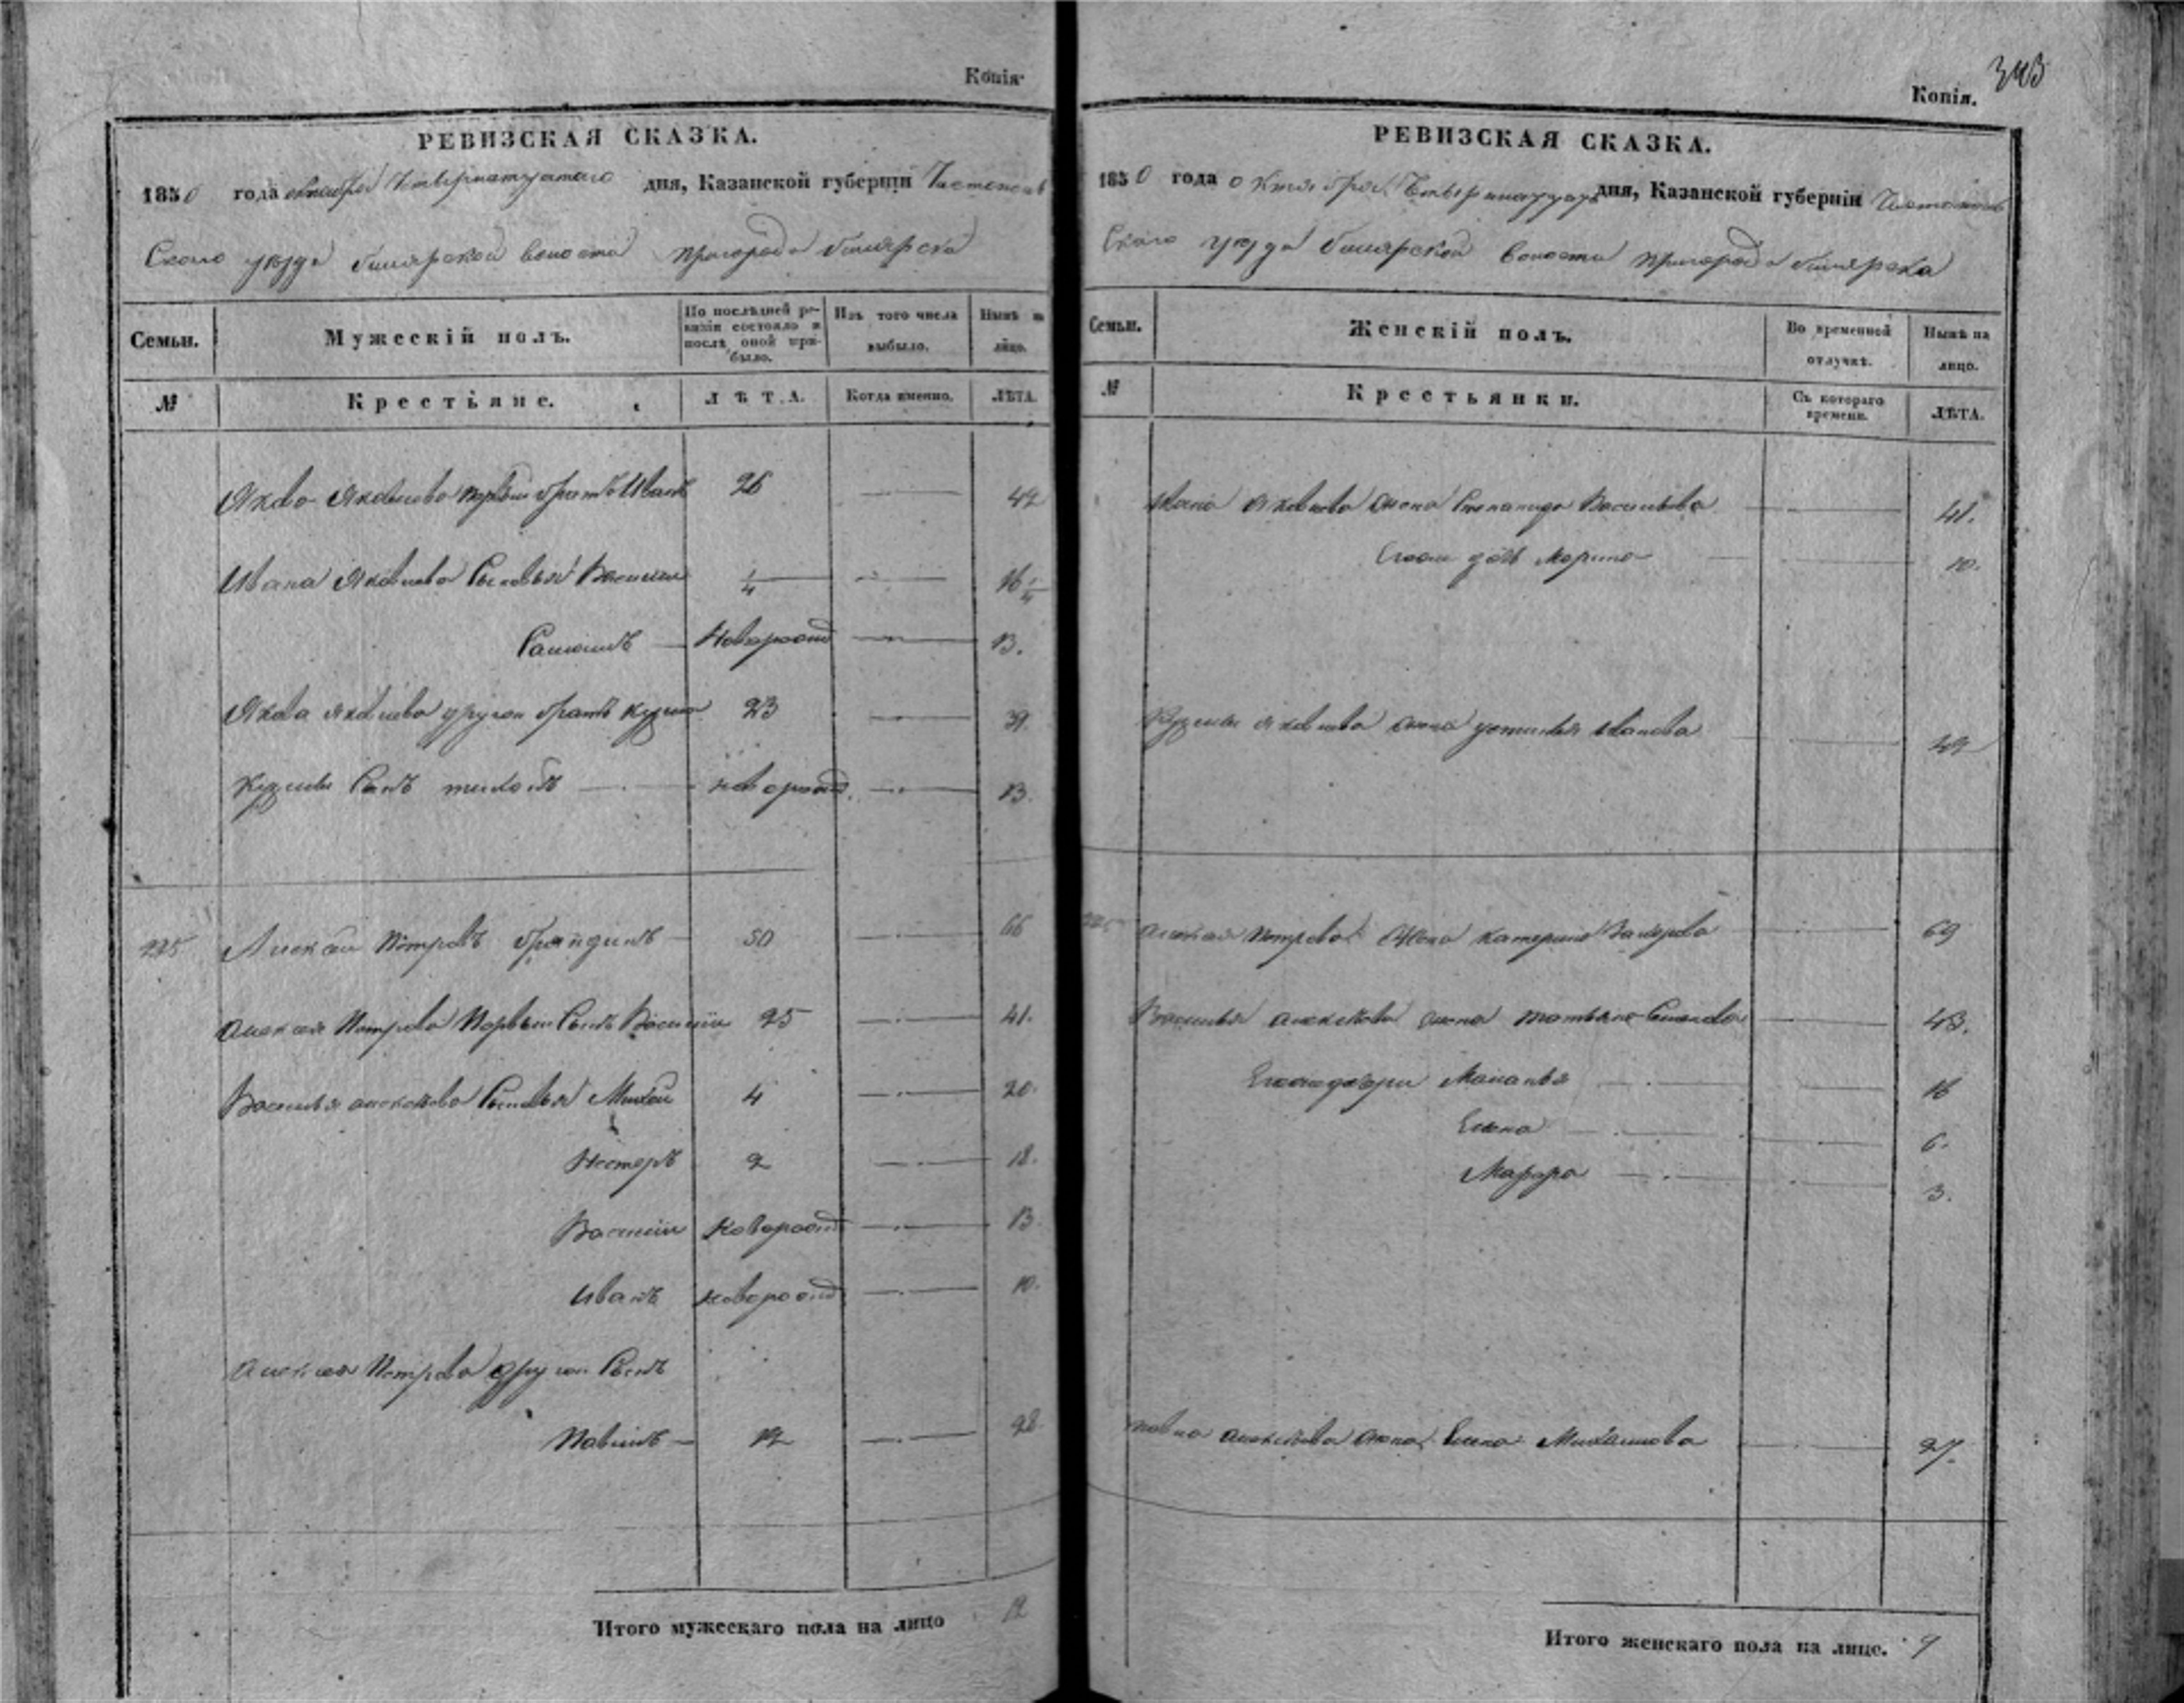 Копія
РЕВИЗСКАЯ СКАЗКА.
1850 года октября Четвернатцатаго дня, Казанской губерніи Чистопол
Скаго уезда билярской волости пригорода билярска
Семьи. Мужескій полъ. По послѣдней ревизіи состояло и послѣ оной прибыло. Изъ того числа выбыло. Нынѣ на лицо.
№ Крестьяне. ЛѢТА. Когда именно. ЛѢТА.
Якова Яковлева первый братъ Иванъ 26 42
Ивана Яковлева Сыновья Василий 1/4 16 1/4
новарожд 13.
Якова Яковлева другой братъ кузма 23 39.
кузмы Сынъ новорожд. 13.
225 Алексей Петровъ 50 66
алексея Петрова Первый Сынъ Василий 25 41.
Василья алексеева Сыновья Михай 4 20.
Нестеръ 2 18.
Василий новарожд 13
иванъ новорожд 10.
алексея Петрова другой Сынъ
Павилъ 12 28.
Итого мужескаго пола на лицо 12
343
Копія.
РЕВИЗСКАЯ СКАЗКА.
1850 года октября Четвернатцат дня, Казанской губерніи Чистопол
Скаго уезда билярской волости пригорода билярска
Семьи. Женскій полъ. Во временной отлучкѣ. Нынѣ на лицо.
№ Крестьянки. Съ котораго времени. ЛѢТА.
Ивана Яковлева жена Степанида Васильева 41.
дочь Марина 10.
Кузмы Яковлева жена устинья иванова
225 алексея Петрова Жена катерина 69
Василья алексеева жена татьяна 43.
Маланья 16
Елена 6.
Марфа 3.
павла алексеева жена Елена Михаилова 27.
Итого женскаго пола на лице. 9